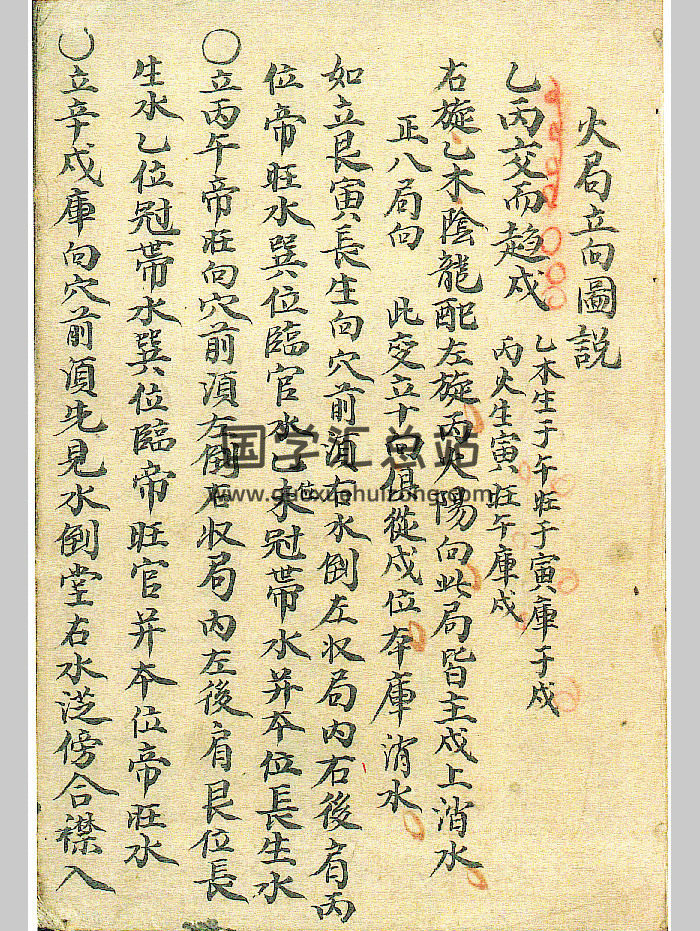 火局立向圖説
乙丙交而趨戍 乙木生于午旺于寅庫于戍
丙火生寅旺午庫戍
右旋乙木陰龍配左旋丙火陽向此局皆主戍上消水
正八局向 此变立十向俱從戍位夲庫消水
如立艮寅長生向穴前湏右水倒左収局内右後肩丙
位帝旺水巽位臨官水乙位冠帶水并夲位長生水
〇立丙午帝旺向穴前湏左倒右収局内左後肩艮位長
生水乙位冠帶水巽位臨帝旺官并夲位帝旺水
〇立辛戍庫向穴前湏先見水倒堂右水湴傍合襟入
国学汇总站
www.guoxuehuizong.com